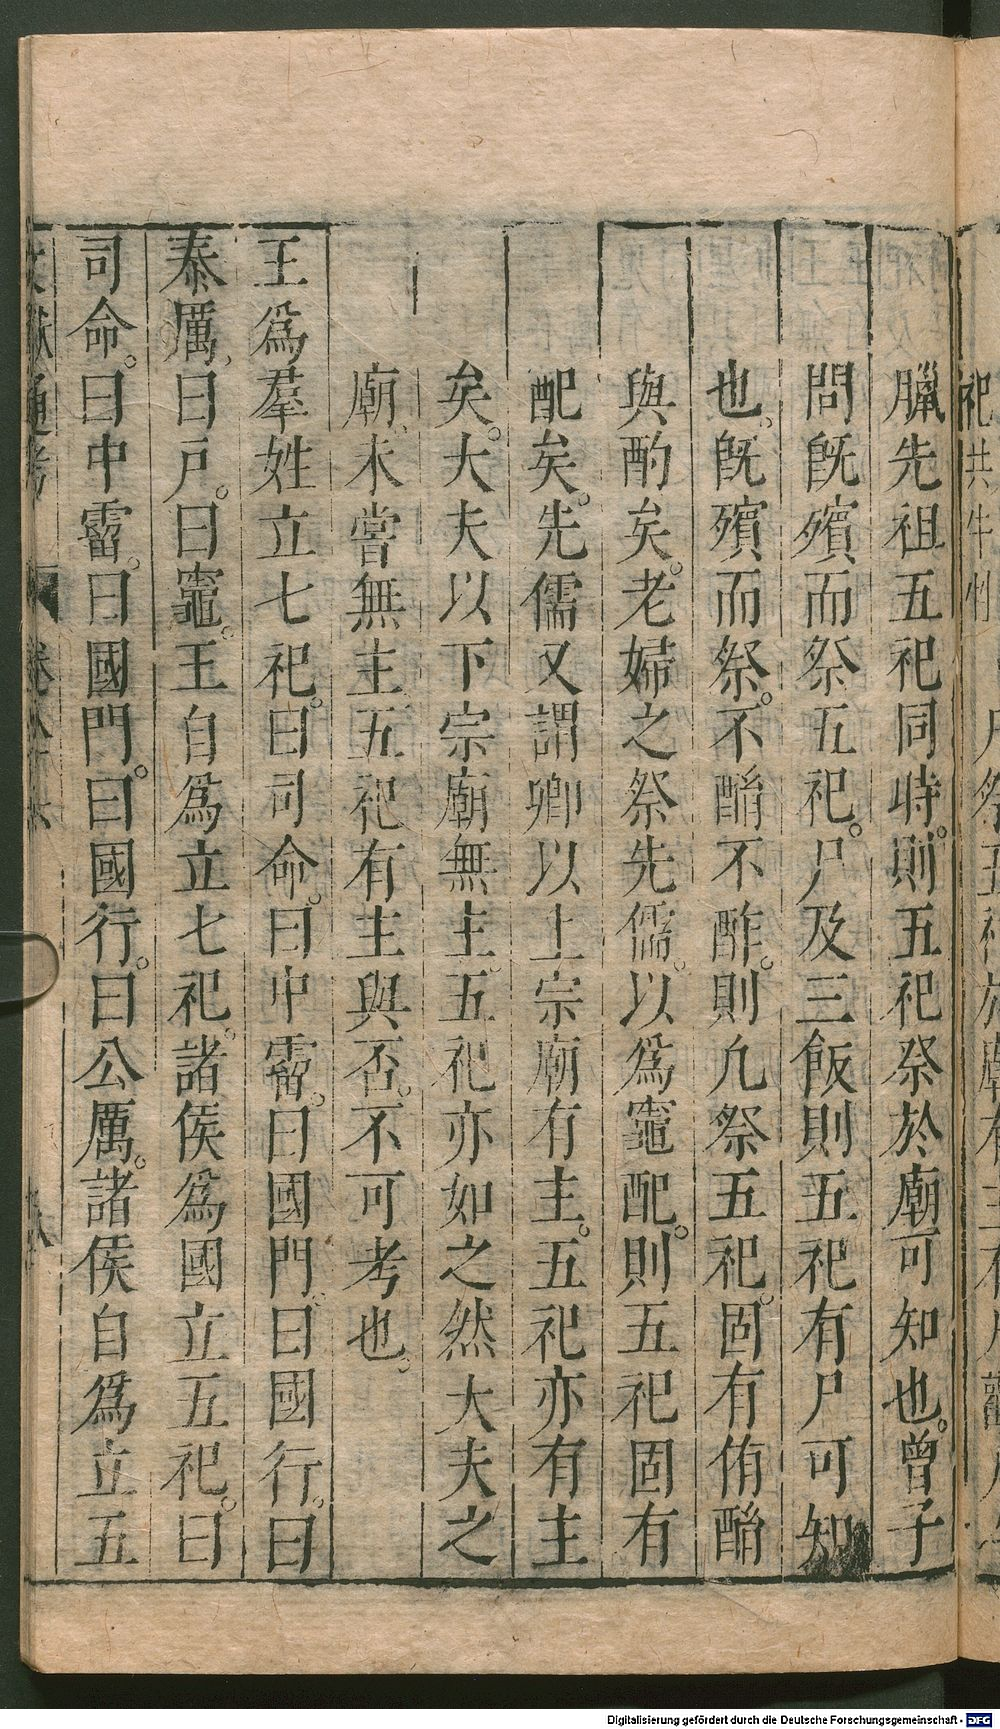 臘先祖五祀同時。則五祀祭於廟可知也。曾子
問旣殯而祭五祀。尸及三飯則五祀有尸可知
也。旣殯而祭。不酳不酢。則凡祭五祀。固有侑酳
與酌矣。老婦之祭先儒。以爲竈配。則五祀固有
配矣。先儒又謂卿以上宗廟有主。五祀亦有主
矣。大夫以下宗廟無主。五祀亦如之然大夫之
廟、未嘗無主五祀有主與否。不可考也。
王爲羣姓立七祀。曰司命。曰中霤。曰國門。曰國行。曰
泰厲、曰戸。曰竈。王自爲立七祀。諸侯爲國立五祀。曰
司命。曰中霤。曰國門。曰國行。曰公厲。諸侯自爲立五
文獻通考 卷八十六
Digitalisierung gefördert durch die Deutsche Forschungsgemeinschaft - DFG